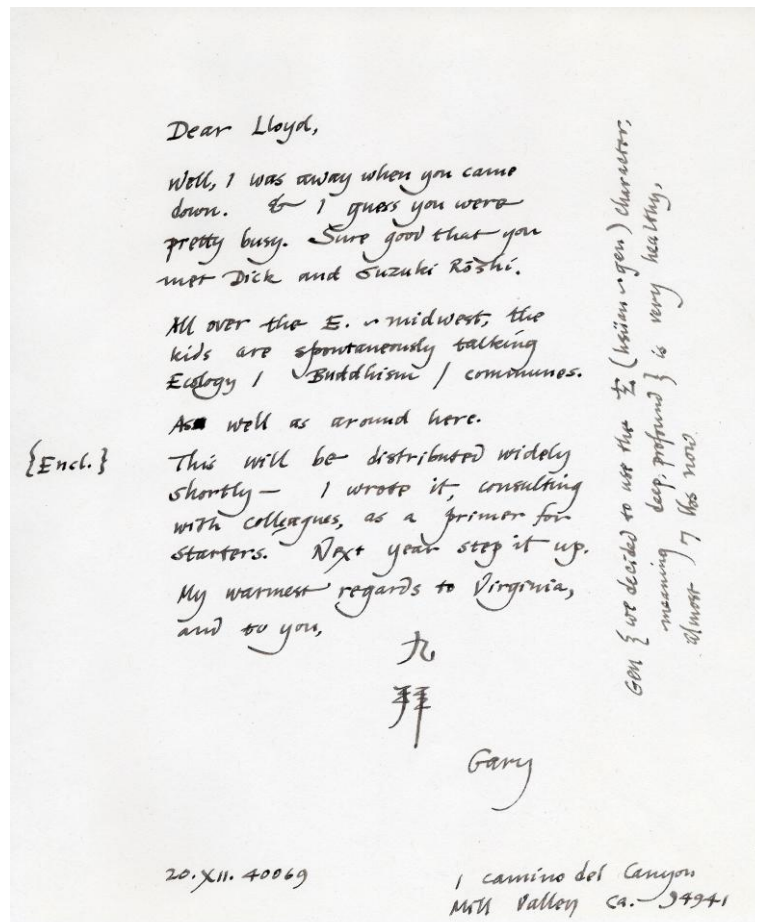 Dear Lloyd,
Well, I was away when you came
down. & I guess you were
pretty busy. Sure good that you
met Dick and Suzuki Rōshi.
All over the E. ~ midwest, the
kids are spontaneously talking
Ecology / Buddhism / communes.
As well as around here.
{Encl.}
This will be distributed widely
shortly — I wrote it, consulting
with colleagues, as a primer for
starters. Next year step it up.
My warmest regards to Virginia,
and to you,
九
拜
Gary
20.XII.40069
1 Camino del Canyon
Mill Valley Ca. — 94941
Gen { we decided to use the 玄 (hsüan ~ gen) character,
meaning deep, profound } is very healthy,
almost 7 lbs now.